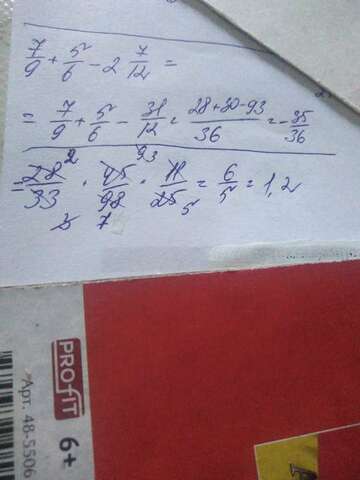 7/9 + 5/6 - 2 7/12 =
= 7/9 + 5/6 - 31/12 = 28+30-93/36 = -35/36
= 28/33 · 45/98 · 11/25 = 6/5 = 1,2
2 9 3
3 7 5
PROFIT
6+
Арт. 48-5506